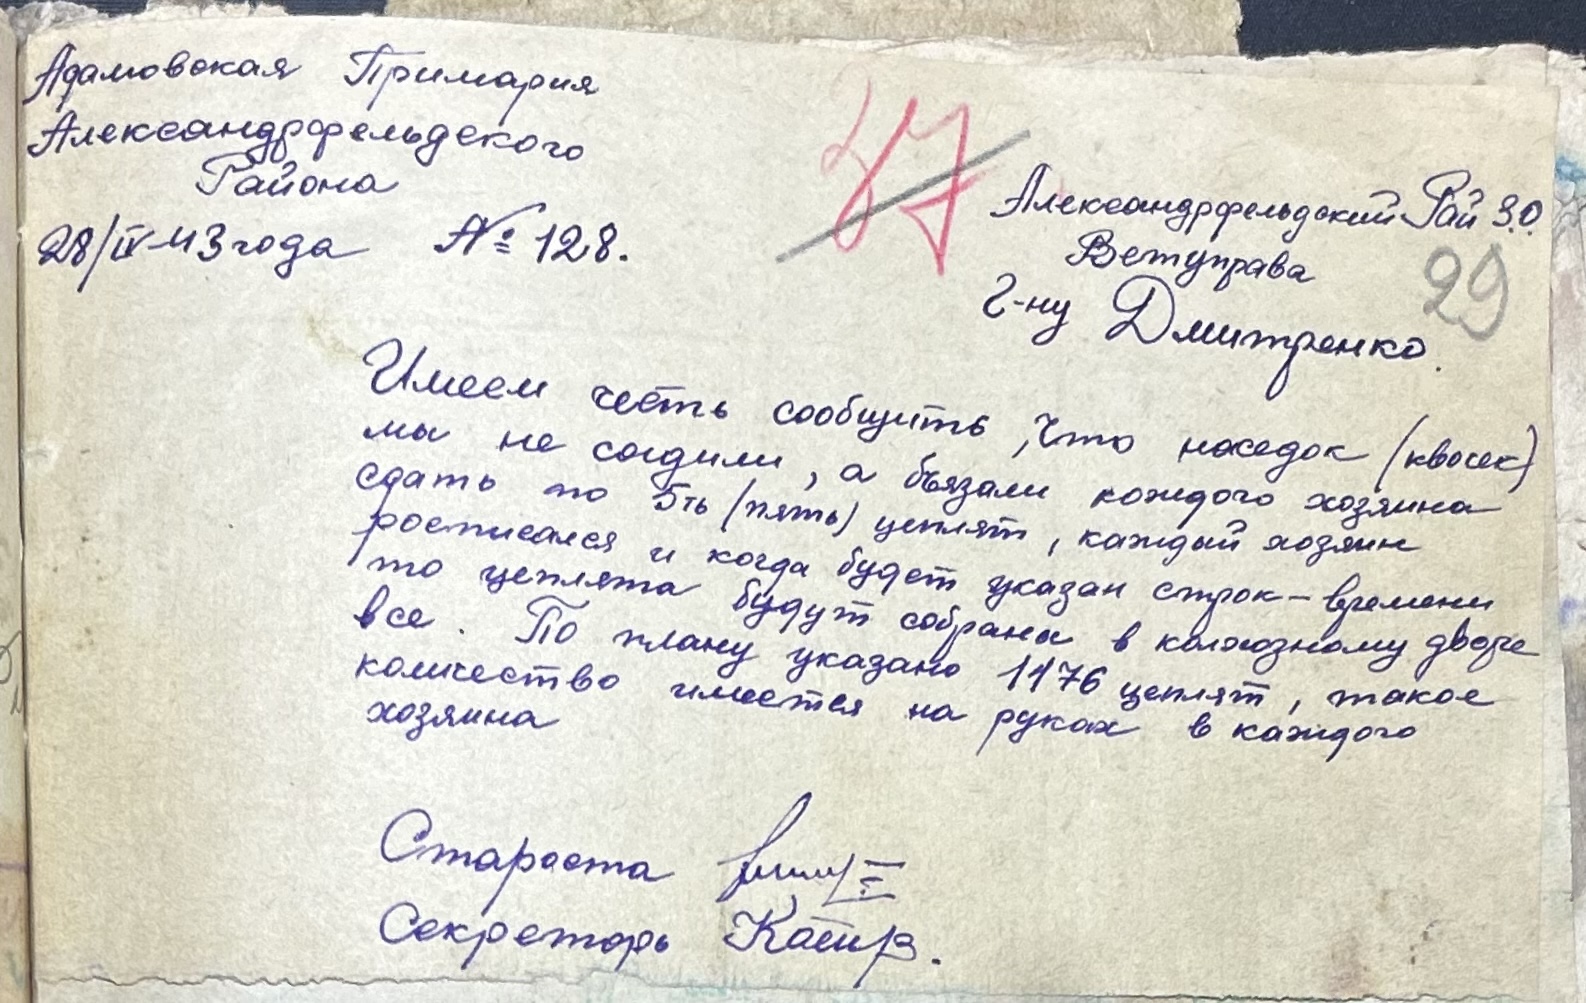 Адамовская Примария
Александрфельдского
Района
28/IV-43 года № 128.
37
Александрфельдский Рай З.О.
Ветуправа
29
г-ну Дмитренко.
Имеем честь сообщить, что наседок (квочек)
мы не садили, а бъязали каждого хозяина
сдать по 5ть (пять) цеплят, каждый хозяин
росписался и когда будет указан строк-времени
то цеплята будут собраны в колхозному дворе
все. По плану указано 1176 цеплят, такое
количество имеется на руках в каждого
хозяина
Староста
Секреторь